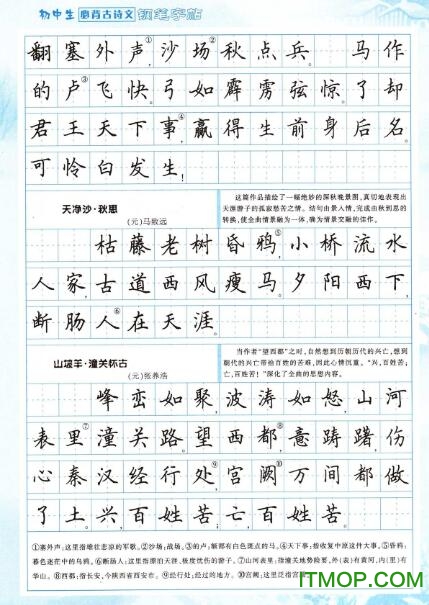 初中生 必背古诗文 钢笔字帖
翻塞外声①,沙场②秋点兵。 马作
的卢③飞快,弓如霹雳弦惊。了却
君王天下事④,赢得生前身后名。
可怜白发生!
天净沙·秋思
(元)马致远
这篇作品描绘了一幅绝妙的深秋晚景图,真切地表现出
天涯游子的孤寂愁苦之情。结句由景入情,完成由秋到思的
转换,使全曲情景融为一体,确为情景交融的佳作。
枯藤老树昏鸦⑤,小桥流水
人家,古道西风瘦马。夕阳西下,
断肠人⑥在天涯。
山坡羊·潼关怀古
(元)张养浩
当作者“望西都”之时,自然想到历朝历代的兴亡,想到
朝代的兴亡带给百姓的苦难,因此心情沉重。“兴,百姓苦;
亡,百姓苦!”深化了全曲的思想内容。
峰峦如聚,波涛如怒,山河
表里⑦潼关路。望西都⑧,意踌躇,伤
心秦汉经行处⑨,宫阙⑩万间都做
了土。兴,百姓苦;亡,百姓苦。
①塞外声:这里指雄壮悲凉的军歌。②沙场:战场。③的卢:额部有白色斑点的马。④天下事:指收复中原这件大事。⑤昏鸦:
暮色迷茫中的乌鸦。⑥断肠人:这里指漂泊天涯、极度忧伤的游子。⑦山河表里:指潼关地势险要,外(表)有黄河,内(里)有
华山。⑧西都:指长安,今陕西省西安市。⑨经行处:经过的地方。⑩宫阙:这里泛指宫
ITMOP.COM